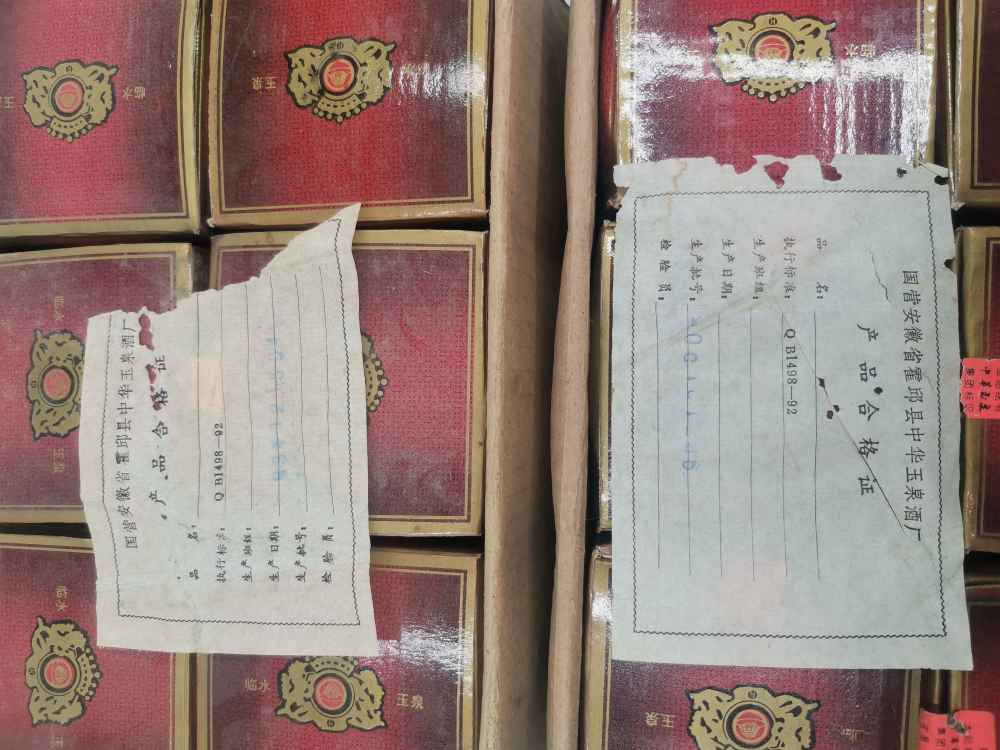 国营安徽省霍邱县中华玉泉酒厂
产品合格证
品 名:
执行标准: Q B1498—92
生产班组:
生产日期:
生产批号:
检 验 员:
国营安徽省霍邱县中华玉泉酒厂
产品合格证
品 名:
执行标准: Q B1498—92
生产班组:
生产日期:
生产批号:
检 验 员:
临水
玉泉
临水
玉泉
临水
玉泉
临水
临水
玉泉